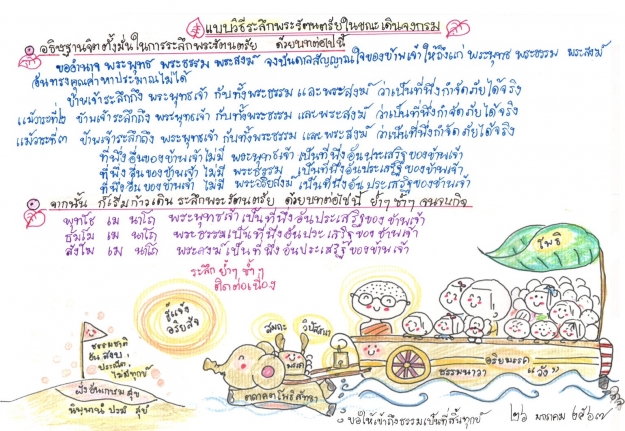 แบบวิธีระลึกพระรัตนตรัยในขณะเดินจงกรม
อธิษฐานจิตตั้งมั่นในการระลึกพระรัตนตรัย ด้วยบทต่อไปนี้
ขออำนาจ พระพุทธ พระธรรม พระสงฆ์ จงบันดาลสัญญาณใจของข้าพเจ้า ให้ถึงแก่ พระพุทธ พระธรรม พระสงฆ์
อันทรงคุณค่าหาประมาณไม่ได้
ข้าพเจ้าระลึกถึง พระพุทธเจ้า กับทั้งพระธรรม และพระสงฆ์ ว่าเป็นที่พึ่งกำจัดภัยได้จริง
แม้วาระที่๒ ข้าพเจ้าระลึกถึง พระพุทธเจ้า กับทั้งพระธรรม และพระสงฆ์ ว่าเป็นที่พึ่งกำจัดภัยได้จริง
แม้วาระที่๓ ข้าพเจ้าระลึกถึง พระพุทธเจ้า กับทั้งพระธรรม และพระสงฆ์ ว่าเป็นที่พึ่งกำจัดภัยได้จริง
ที่พึ่งอื่นของข้าพเจ้าไม่มี พระพุทธเจ้า เป็นที่พึ่งอันประเสริฐของข้าพเจ้า
ที่พึ่งอื่นของข้าพเจ้า ไม่มี พระธรรม เป็นที่พึ่งอันประเสริฐของข้าพเจ้า
ที่พึ่งอื่นของข้าพเจ้า ไม่มี พระอริยสงฆ์ เป็นที่พึ่งอันประเสริฐของข้าพเจ้า
จากนั้น ก็เริ่มก้าวเดิน ระลึกพระรัตนตรัย ด้วยบทต่อไปนี้ ย้ำๆ ซ้ำๆ จนจบกิจ
พุทโธ เม นาโถ พระพุทธเจ้าเป็นที่พึ่งอันประเสริฐของข้าพเจ้า
ธัมโม เม นาโถ พระธรรมเป็นที่พึ่งอันประเสริฐของข้าพเจ้า
สังโฆ เม นาโถ พระสงฆ์เป็นที่พึ่งอันประเสริฐของข้าพเจ้า
ระลึก ย้ำๆ ซ้ำๆ
ติดต่อเนื่อง
โพธิ
รู้แจ้ง
อริยสัจ
สมถะ
วิปัสสนา
ธรรมชาติ
อันสงบ
ประณีต
ไม่มีทุกข์
มรรค
อริยมรรค
ธรรมนาวา "วัง"
ฝั่งอันเกษมสุข
นิพฺพานํ ปรมํ สุขํ
ตถาคตโพธิสัทธา
ขอให้เข้าถึงธรรมเป็นที่สิ้นทุกข์
๒๖ มกราคม ๒๕๖๗